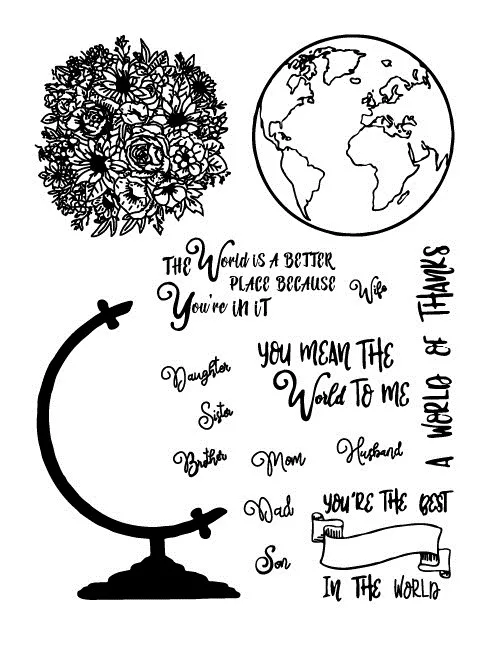 THE World IS A BETTER
PLACE BECAUSE
You're IN IT
Wife
A WORLD OF THANKS
YOU MEAN THE
World TO ME
Daughter
Sister
Brother
Mom
Husband
Dad
YOU'RE THE BEST
Son
IN THE WORLD